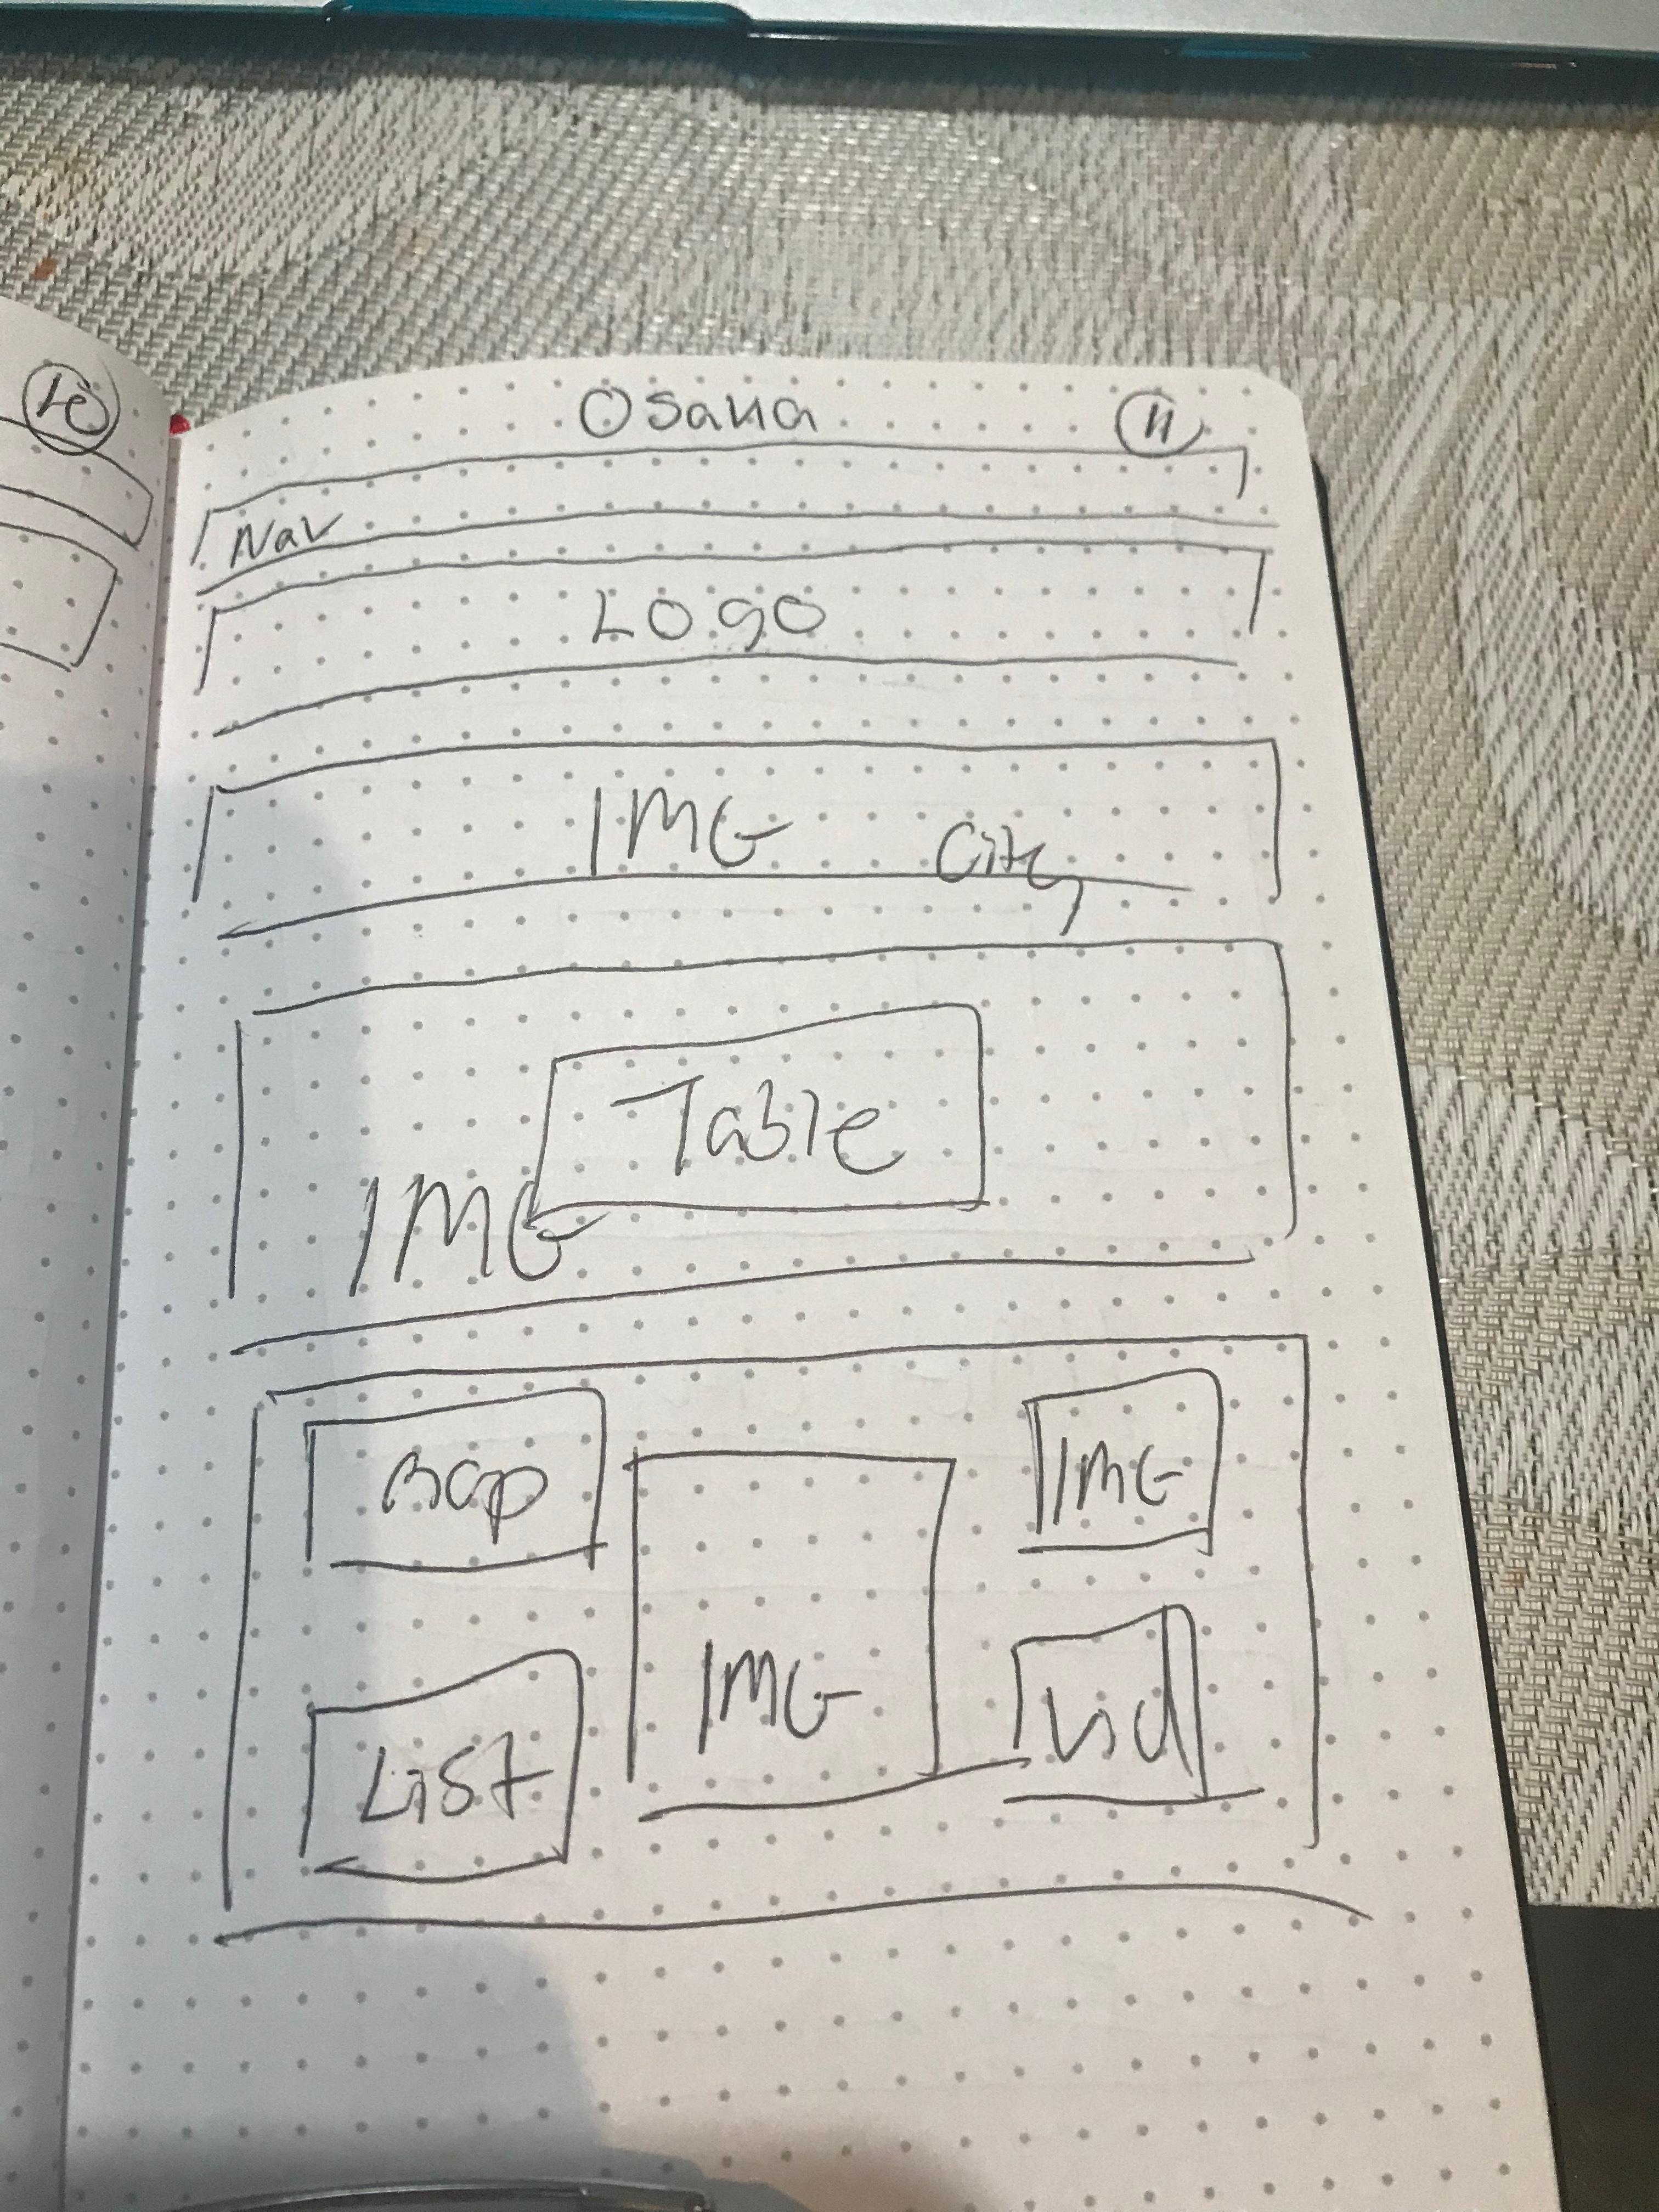 10
Osaka 11
Nav
Logo
IMG City
Table
IMG
Map
IMG
IMG
List
Vid